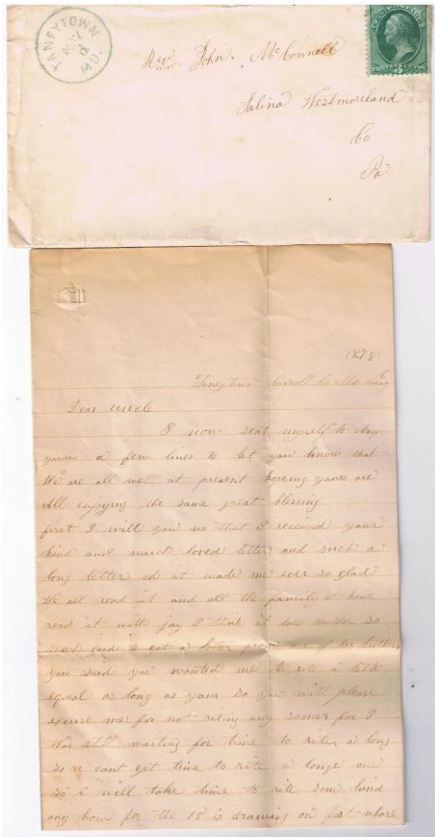 TANEYTOWN
MD.
Rev. John. McConnell
Salina Westmoreland
Co
Pa
THREE CENTS
1878
Taneytown Carroll Co
Dear uncle
I now seat myself to drop
a few lines to let you know that
We are all well at present hoping yours are
All enjoying the same great blessing
first I will you no that I received your
kind and much loved letter and such a
long letter oh it made me ever so glad
We all read it and all the family at home
read it with joy I think it does mother so
much good to get a letter from one of her
You said you wanted me to rite a letter
equal as long as yours so you will please
excure me for not riting any sooner for I
Was still waiting for time to a long
so i cant get time to rite a longe one
so i will take time to rite som kind
any how for the 15 is drawing on fast